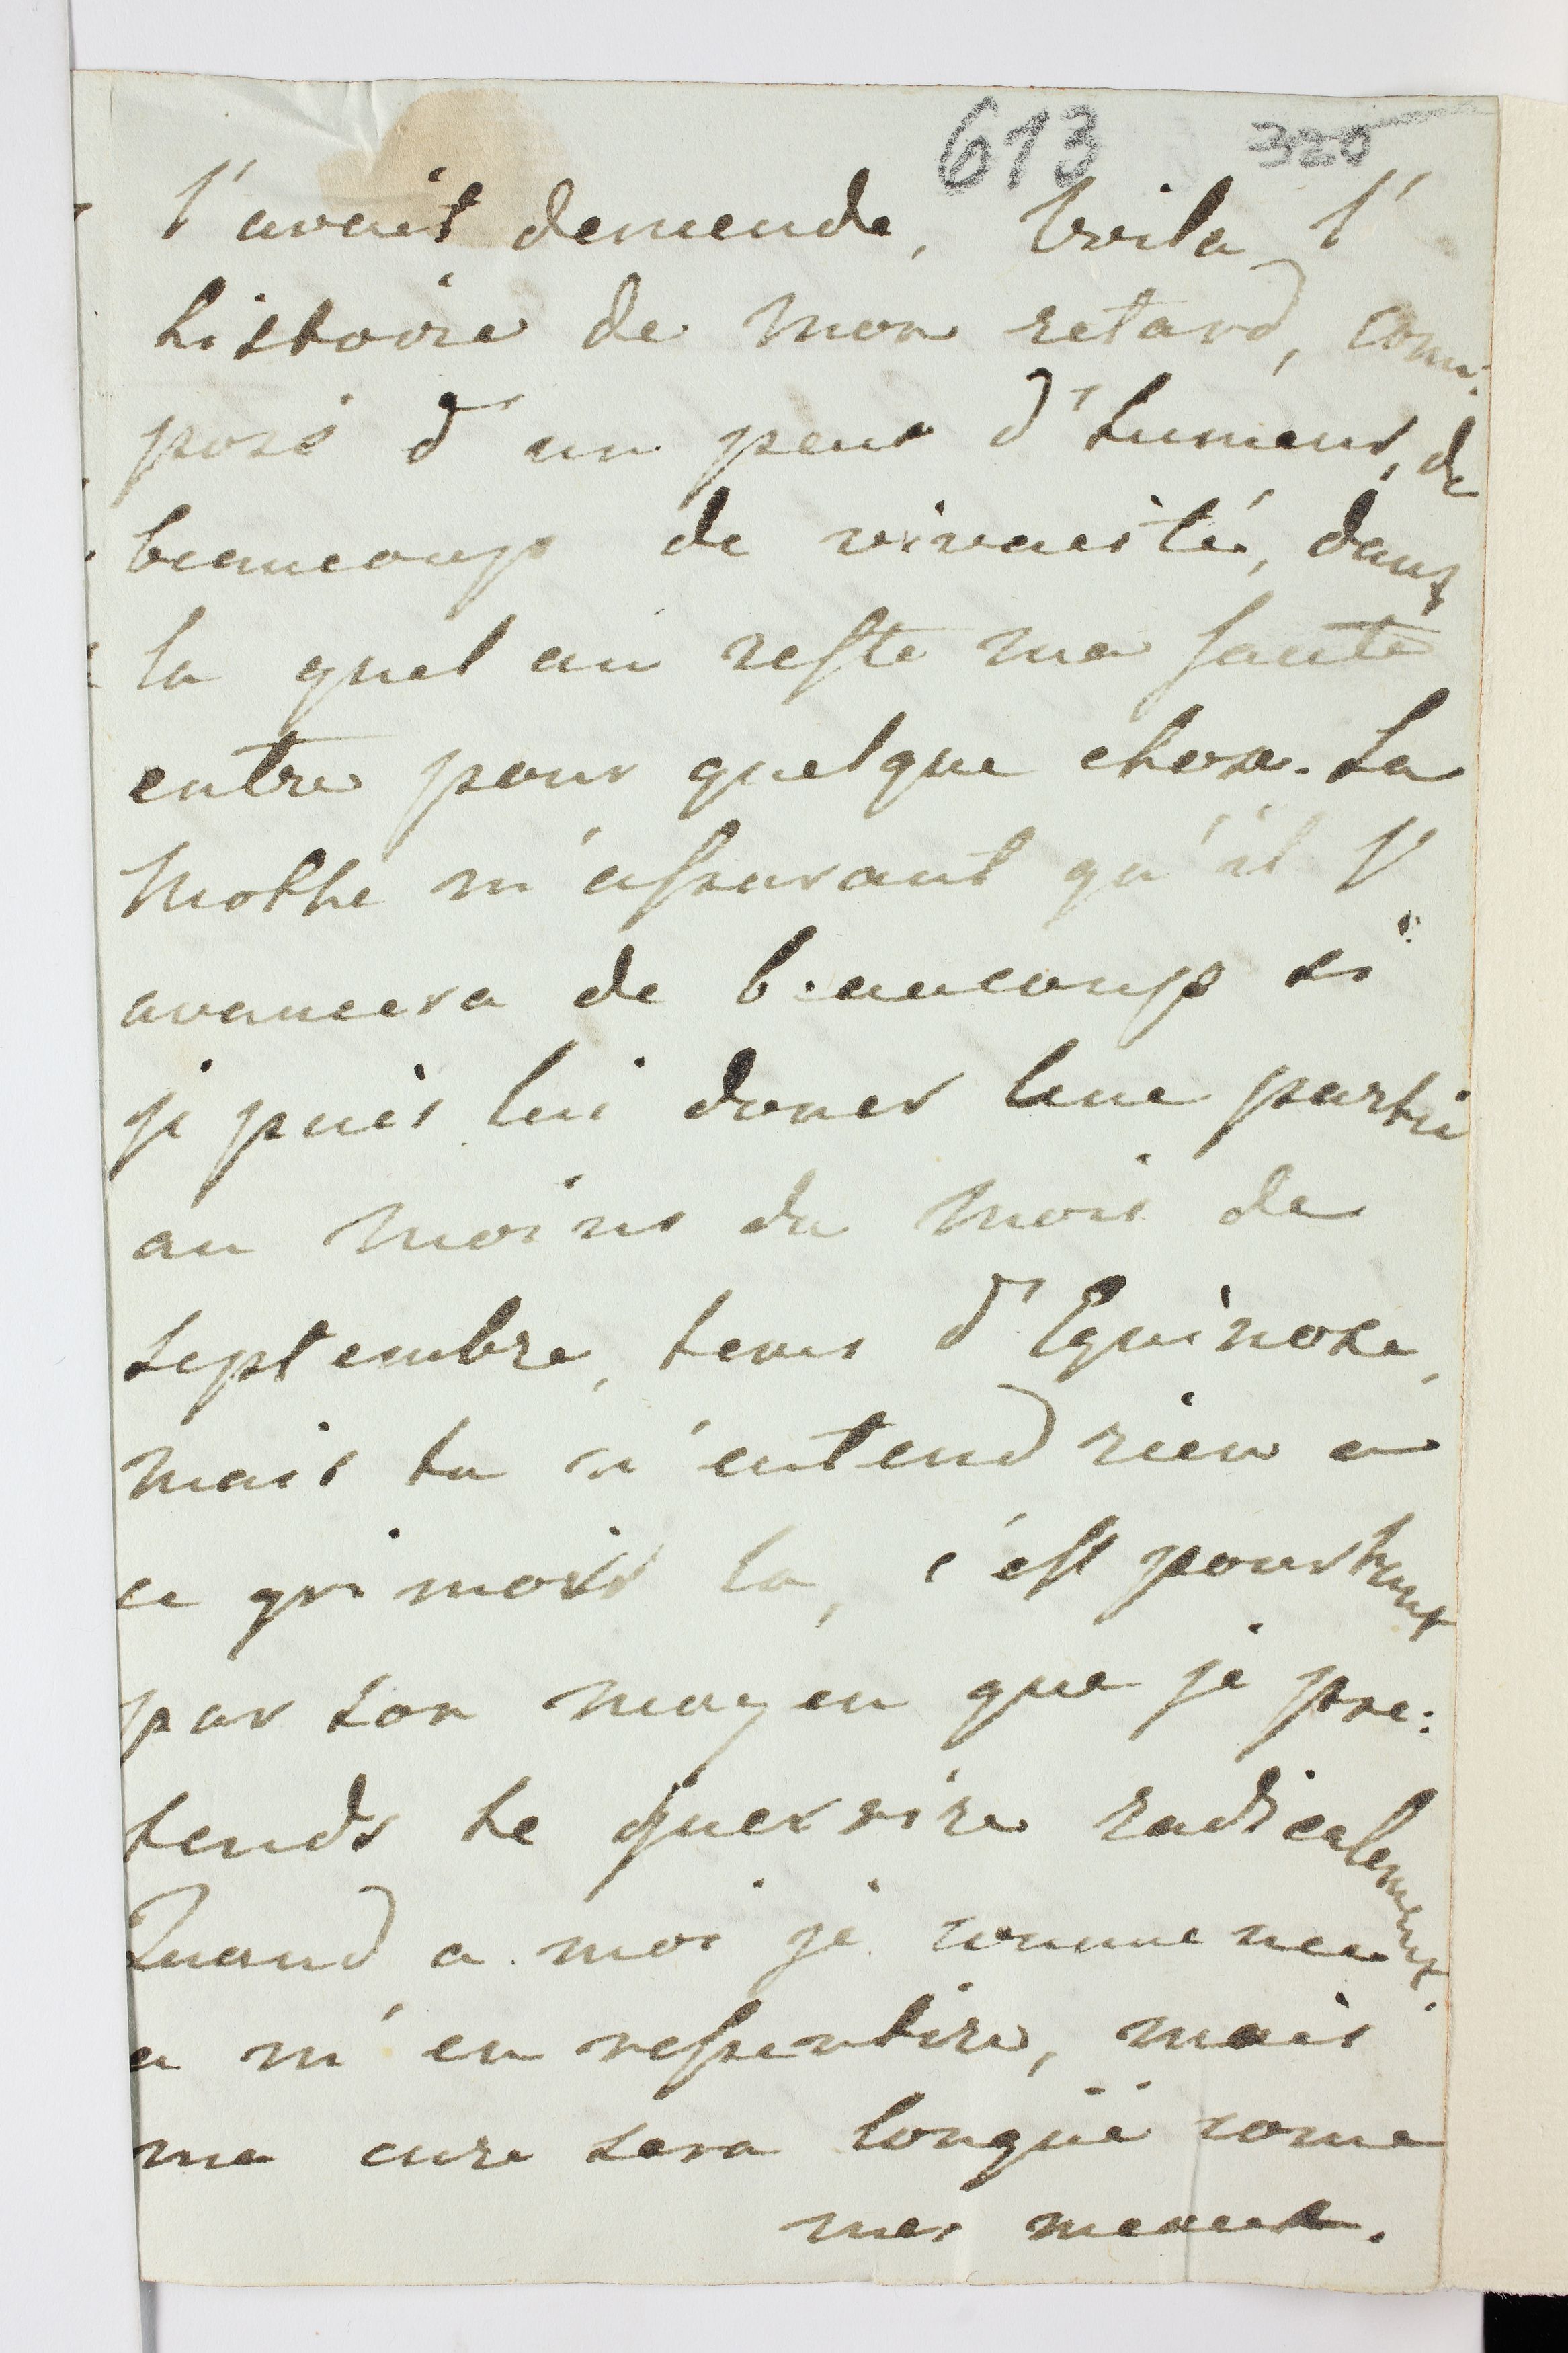 613 320
l'avait demende, Voila l'
histoire de mon retard, com:
posé d'un peux d'humeur, de
beaucoup de vivacité, dans
la quel au reste ma santé
entre pour quelque chose. La
Mothe m'assurant qu'il l'
avancera de beaucoup si
je puis lui doner une partie
au moins du mois de
septembre, tems d'Equinoxe,
mais tu n'entend rien a
ce grimoir la, c'est pourtant
par son moyen que je pre:
tends te querrire radicalement.
Quand a moi je commence
a m'en ressentire, mais
ma cure sera longüe come
mes meaux.